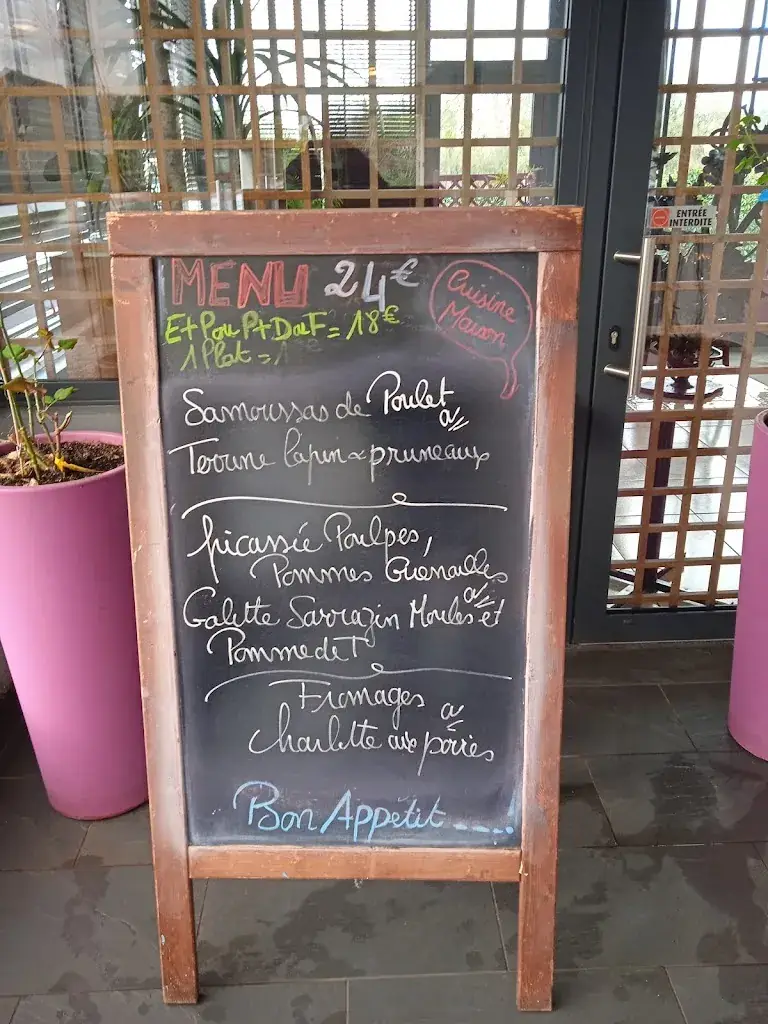 MENU 24€
Cuisine
Maison
E+P ou P+D ou F = 18€
1 Plat = 1
ENTRÉE
INTERDITE
Samoussas de Poulet
ou
Terrine lapin & pruneaux
fricassée Poulpes,
Pommes Grenailles
ou
Galette Sarrazin Moules et
Pomme de T
Fromages ou
Charlotte aux poires
Bon Appétit ...!